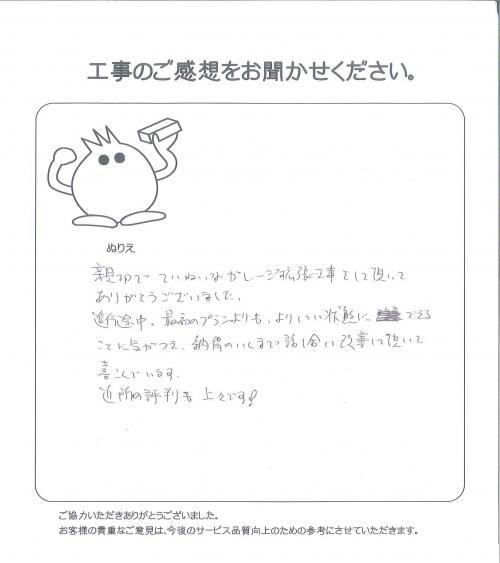 工事のご感想をお聞かせください。
ぬりえ
親切で ていねいなガレージ拡張工事をして頂いて
ありがとうございました。
進行途中、最初のプランよりも、よりいい状態に できる
ことに気がつき、納得のいくまで話し合い改善して頂いて
喜こんでいます。
近所の評判も 上々です!
ご協力いただきありがとうございました。
お客様の貴重なご意見は、今後のサービス品質向上のための参考にさせていただきます。